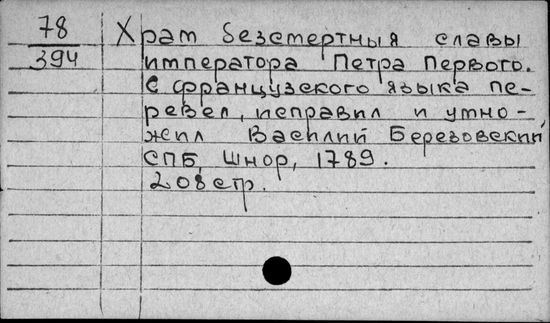 78
394
Храм безсмертныя славы
императора Петра Первого.
С французского языка пе-
ревел, исправил и умно-
жил Василий Березовский
СПБ, Шнор, 1789.
208 стр.